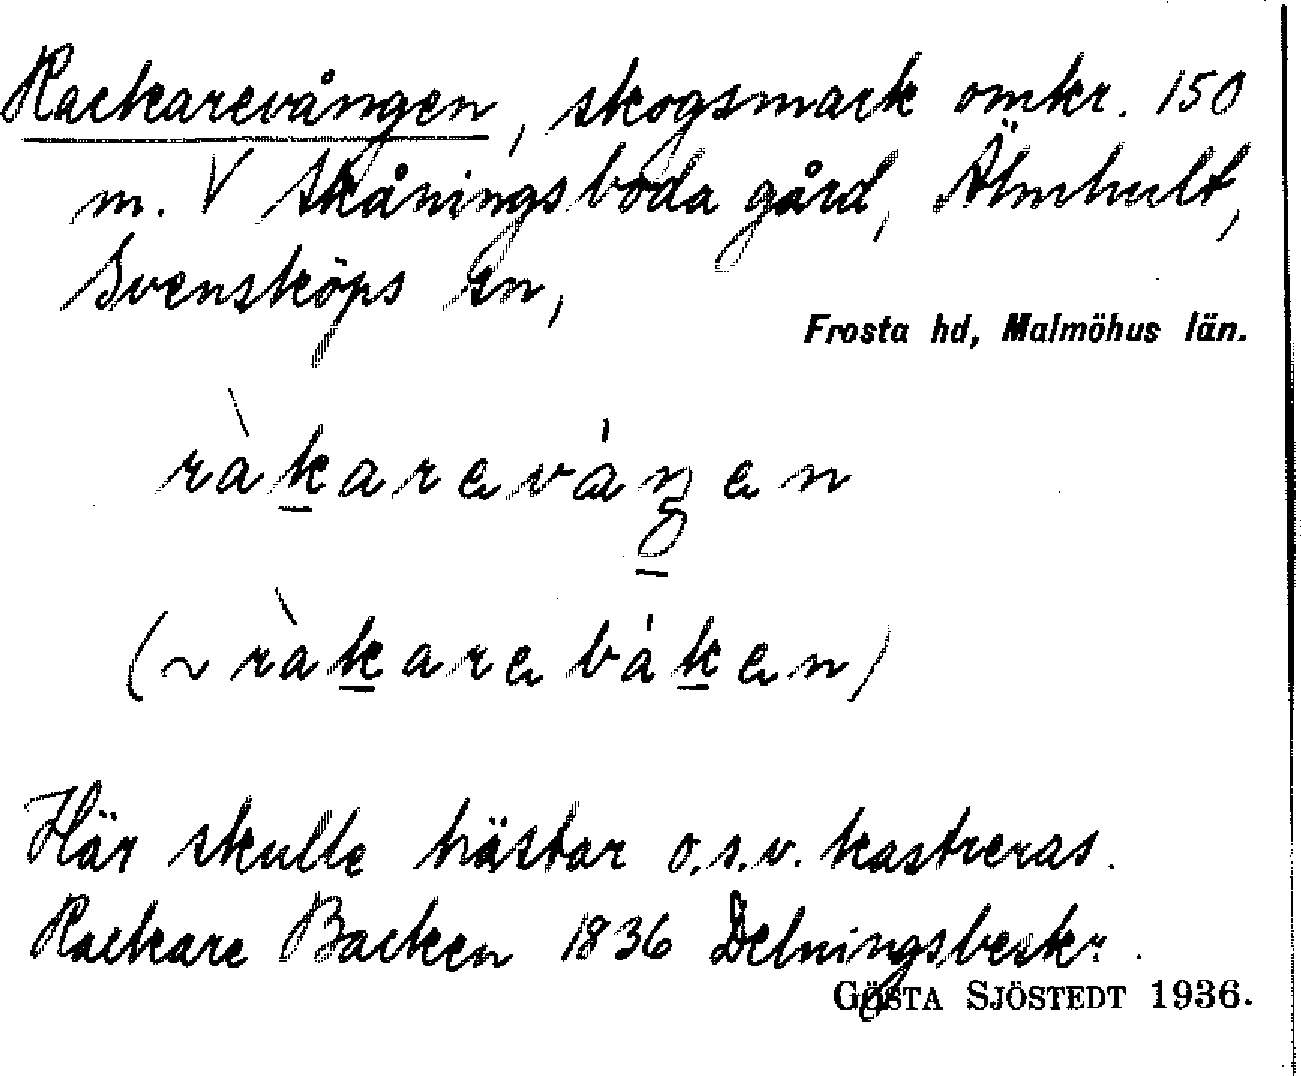 Rackarevången, skogsmark omkr. 150
m. V Skåningsboda gård, Älmhult,
Svensköps sn,
Frosta hd, Malmöhus län.
ràkareváŋen
(~ ràkarebáken)
Här skulle hästar o.s.v. kastreras.
Rackare Backen 1836 Delningsbeskr.
GÖSTA SJÖSTEDT 1936.